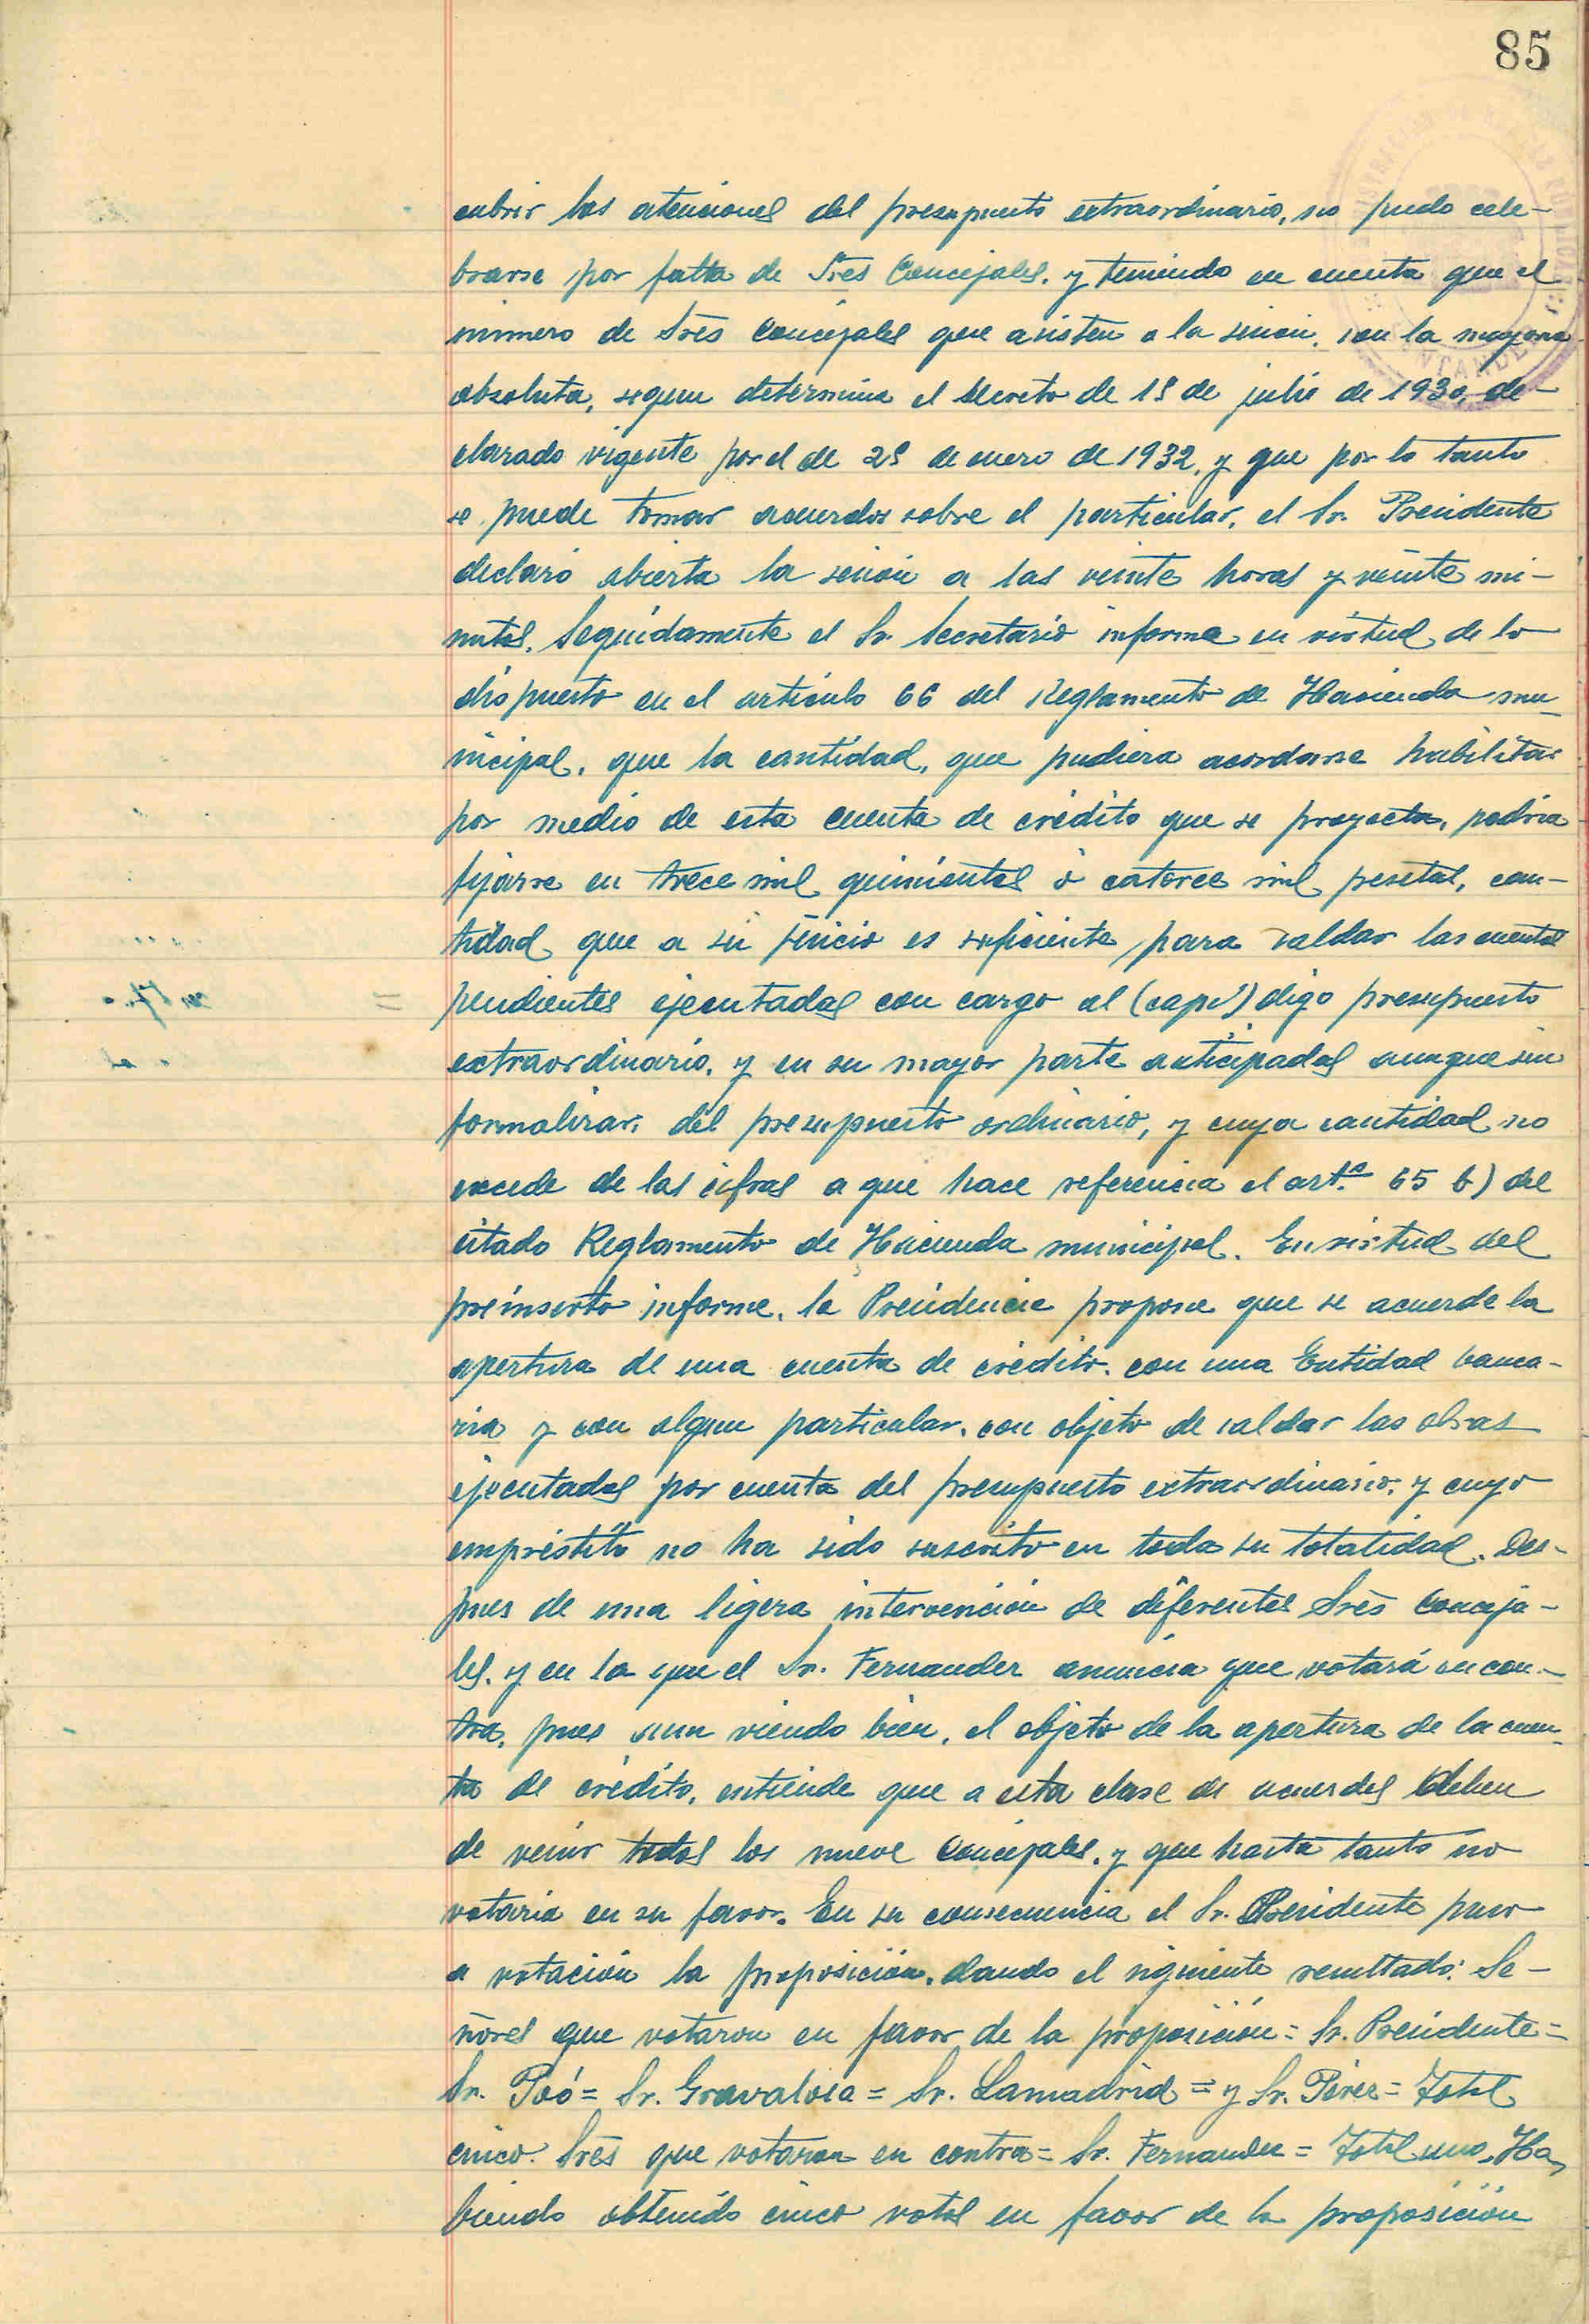 85
cubrir las atenciones del presupuesto extraordinario, no pudo cele-
brarse por falta de Sres Concejales, y teniendo en cuenta que el
número de Sres Concejales que asisten a la sesión, son la mayoria
absoluta, segun determina el Decreto de 18 de julio de 1930, de-
clarado vigente por el de 28 de enero de 1932, y que por lo tanto
se puede tomar acuerdos sobre el particular, el Sr. Presidente
declaró abierta la sesión a las veinte horas y veinte mi-
nutos. Seguidamente el Sr. Secretario informa en virtud de lo
dispuesto en el artículo 66 del Reglamento de Hacienda mu-
nicipal, que la cantidad, que pudiera acordarse habilitar
por medio de esta cuenta de crédito que se proyecta, podria
fijarse en trece mil quinientas ó catorce mil pesetas, can-
tidad que a su juicio es suficiente para saldar las cuentas
pendientes ejecutadas con cargo al (capí) digo presupuesto
extraordinario, y en su mayor parte anticipadas aunque sin
formalizar, del presupuesto ordinario, y cuya cantidad no
excede de las cifras a que hace referencia el artº 65 b) del
citado Reglamento de Hacienda municipal. En virtud del
preinserto informe, la Presidencia propone que se acuerde la
apertura de una cuenta de crédito, con una Entidad banca-
ria y con algun particular, con objeto de saldar las obras
ejecutadas por cuenta del presupuesto extraordinario, y cuyo
empréstito no ha sido suscrito en toda su totalidad. Des-
pues de una ligera intervención de diferentes Sres Conceja-
les, y en la que el Sr. Fernandez anuncia que votará en con-
tra, pues aun viendo bien, el objeto de la apertura de la cuen-
ta de crédito, entiende que a esta clase de acuerdos deben
de venir todos los nueve Concejales, y que hasta tanto no
votaria en su favor. En su consecuencia el Sr. Presidente puso
a votación la proposición, dando el siguiente resultado: Se-
ñores que votaron en favor de la proposición = Sr. Presidente =
Sr. Poó = Sr. Gravalosa = Sr. Lamadrid = y Sr. Pérez = Total
cinco. Sres que votaron en contra = Sr. Fernandez = Total uno. Ha-
biendo obtenido cinco votos en favor de la proposición